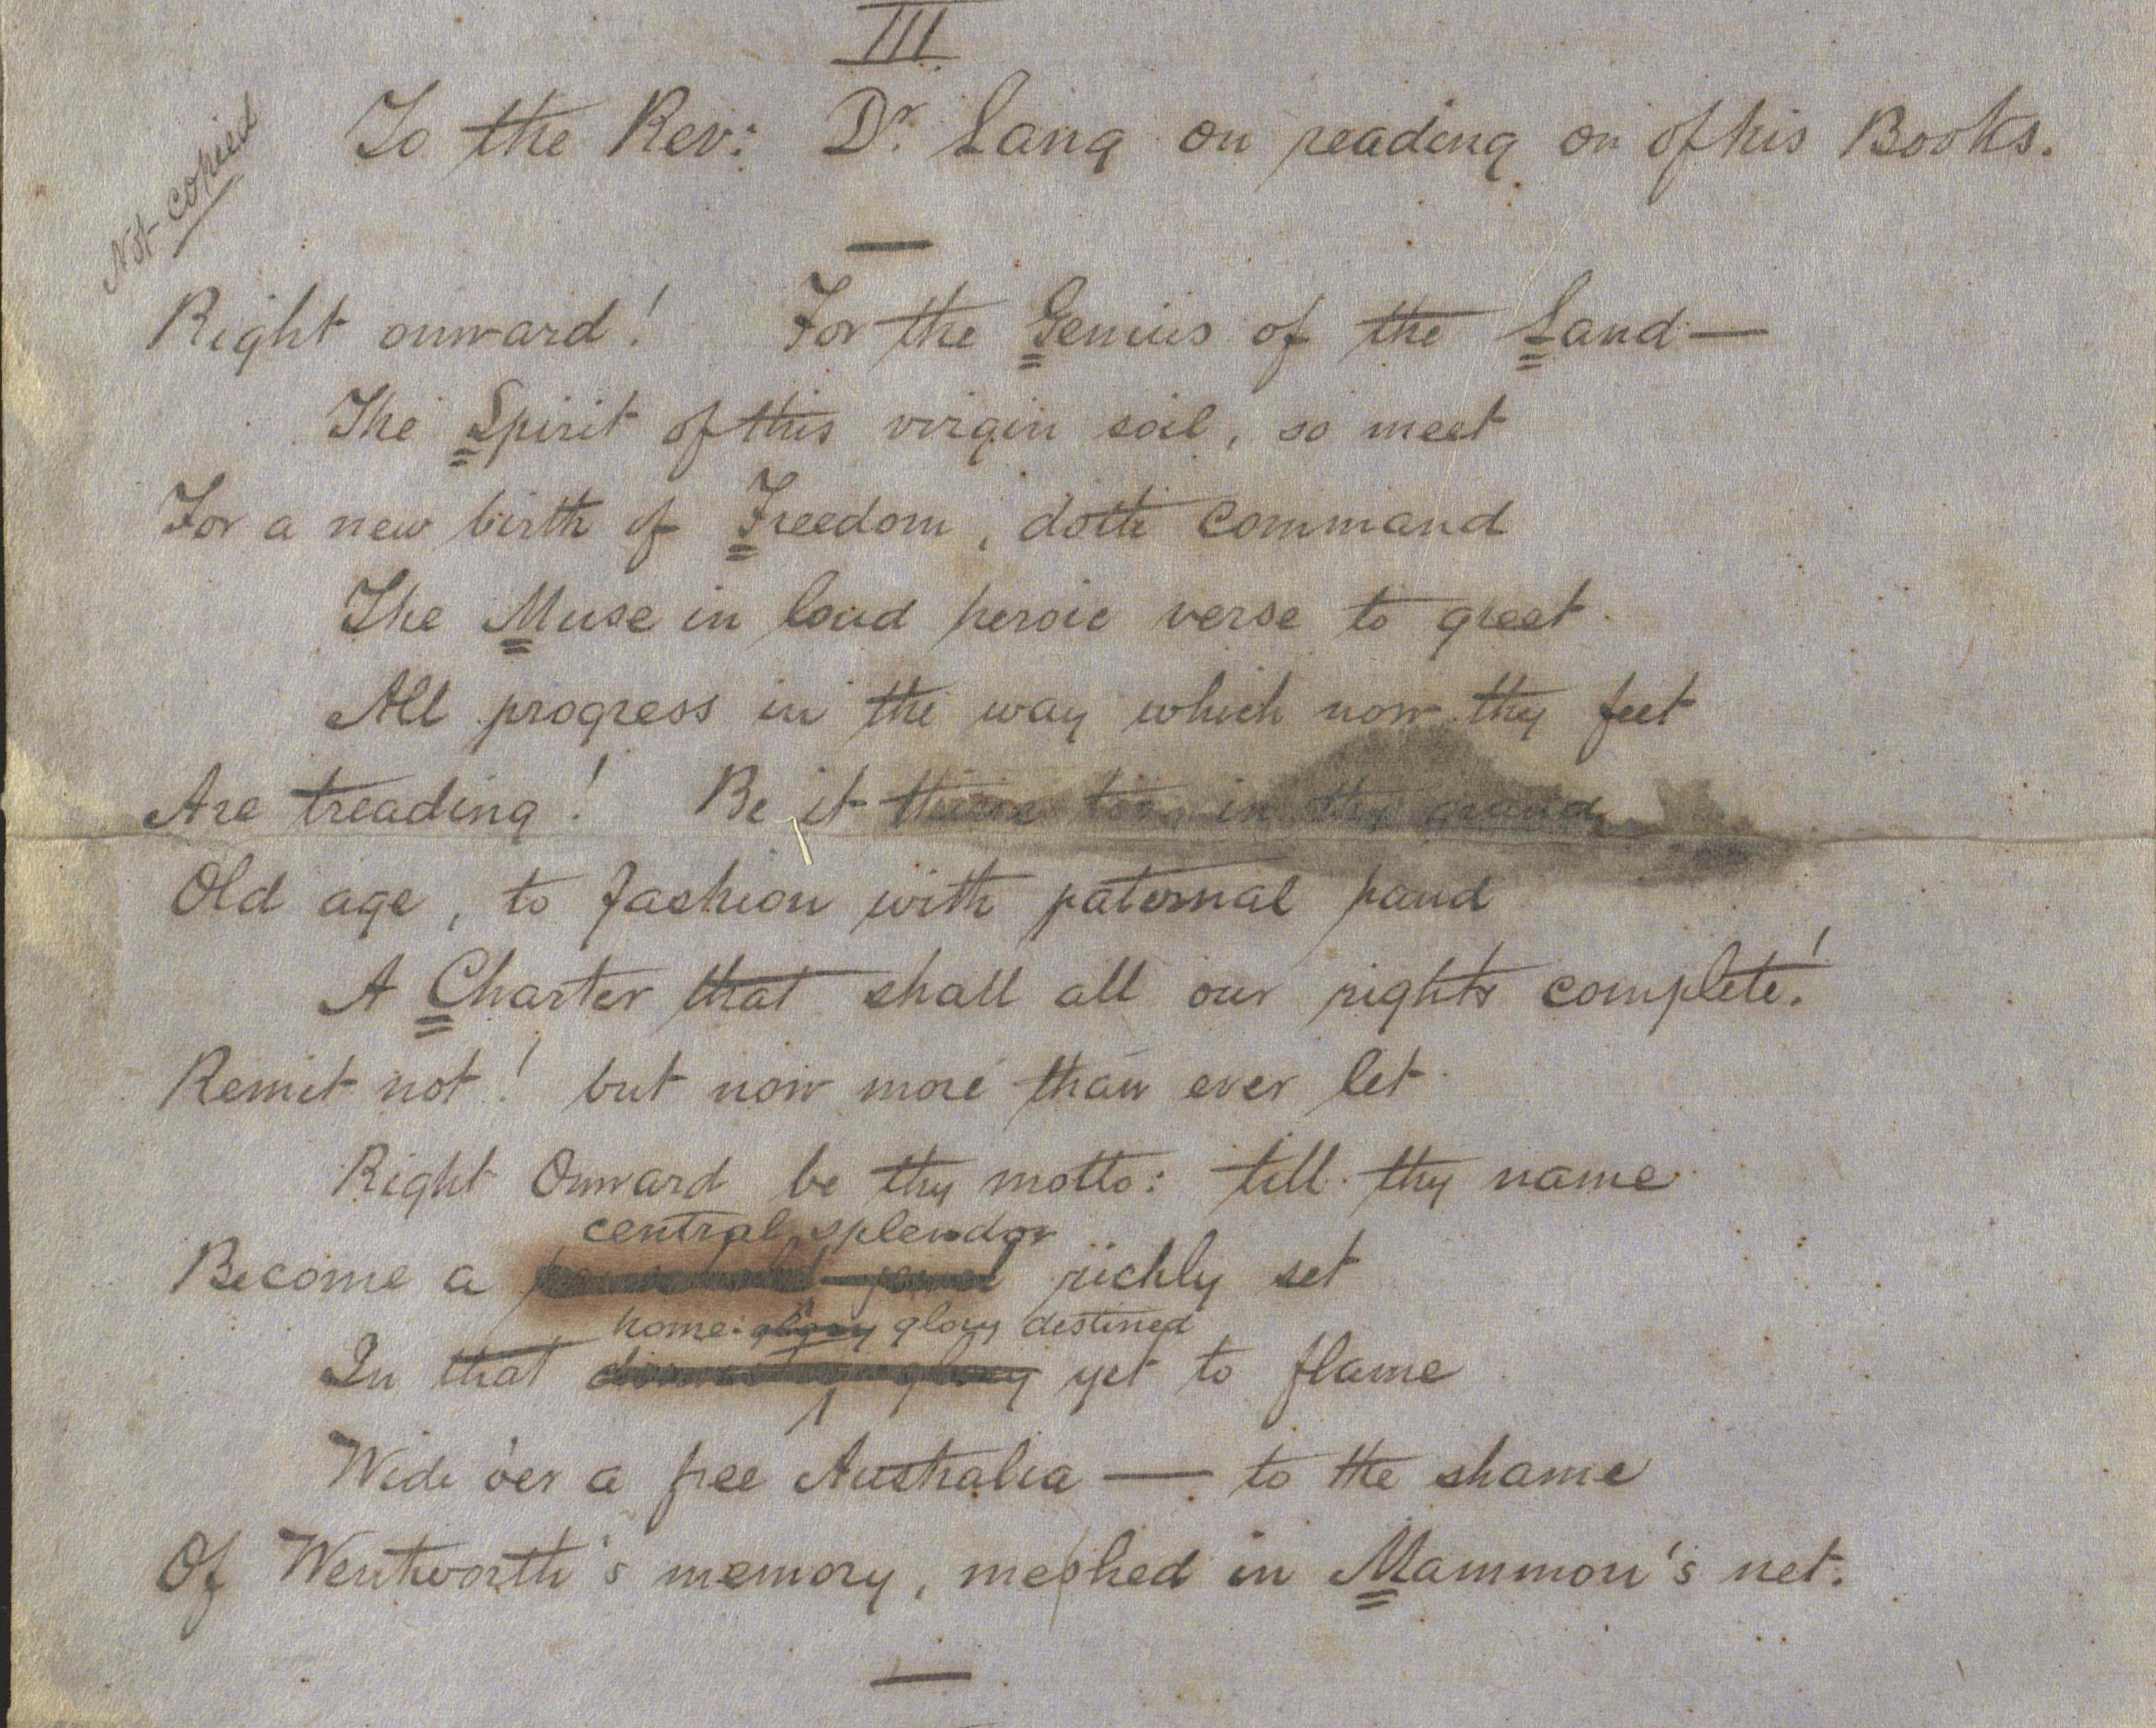 III.
Not copied
To the Rev: Dr. Lang on reading on of his Books.
Right onward! For the Genius of the Land—
The Spirit of this virgin soil, so meet
For a new birth of Freedom, doth command
The Muse in loud heroic verse to greet
All progress in the way which now thy feet
Are treading! Be it thine too, in thy grand
Old age, to fashion with paternal hand
A Charter that shall all our rights complete!
Remit not! but now more than ever let
Right Onward be thy motto: till thy name
central splendor
Become a richly set
home-glory glory destined
In that yet to flame
Wide o'er a free Australia — to the shame
Of Wentworth's memory, meshed in Mammon's net.